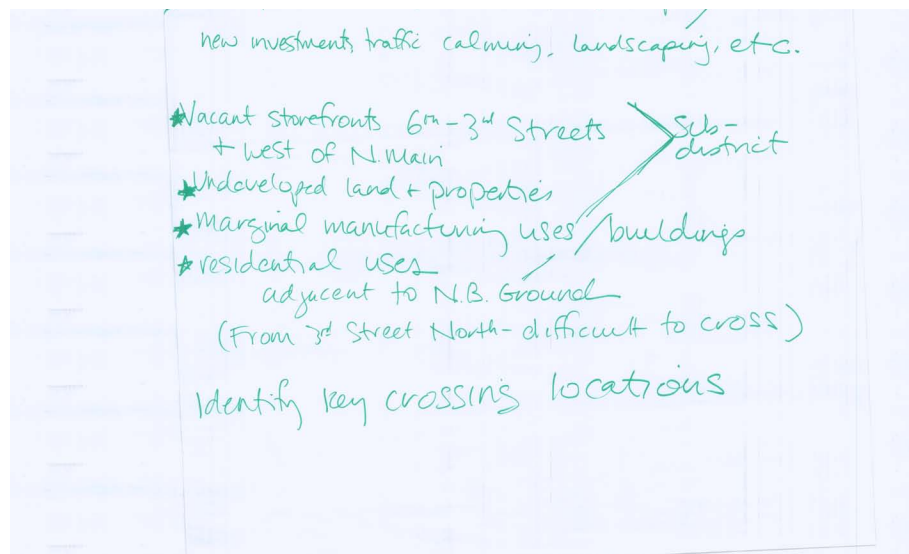 new investments, traffic calming, landscaping, etc.
★Vacant storefronts 6th-3rd Streets
+ west of N. Main
★Undeveloped land + properties
★marginal manufacturing uses/buildings
★residential uses
adjacent to N.B. Ground
(From 3rd Street North - difficult to cross)
Sub-
district
Identify key crossing locations